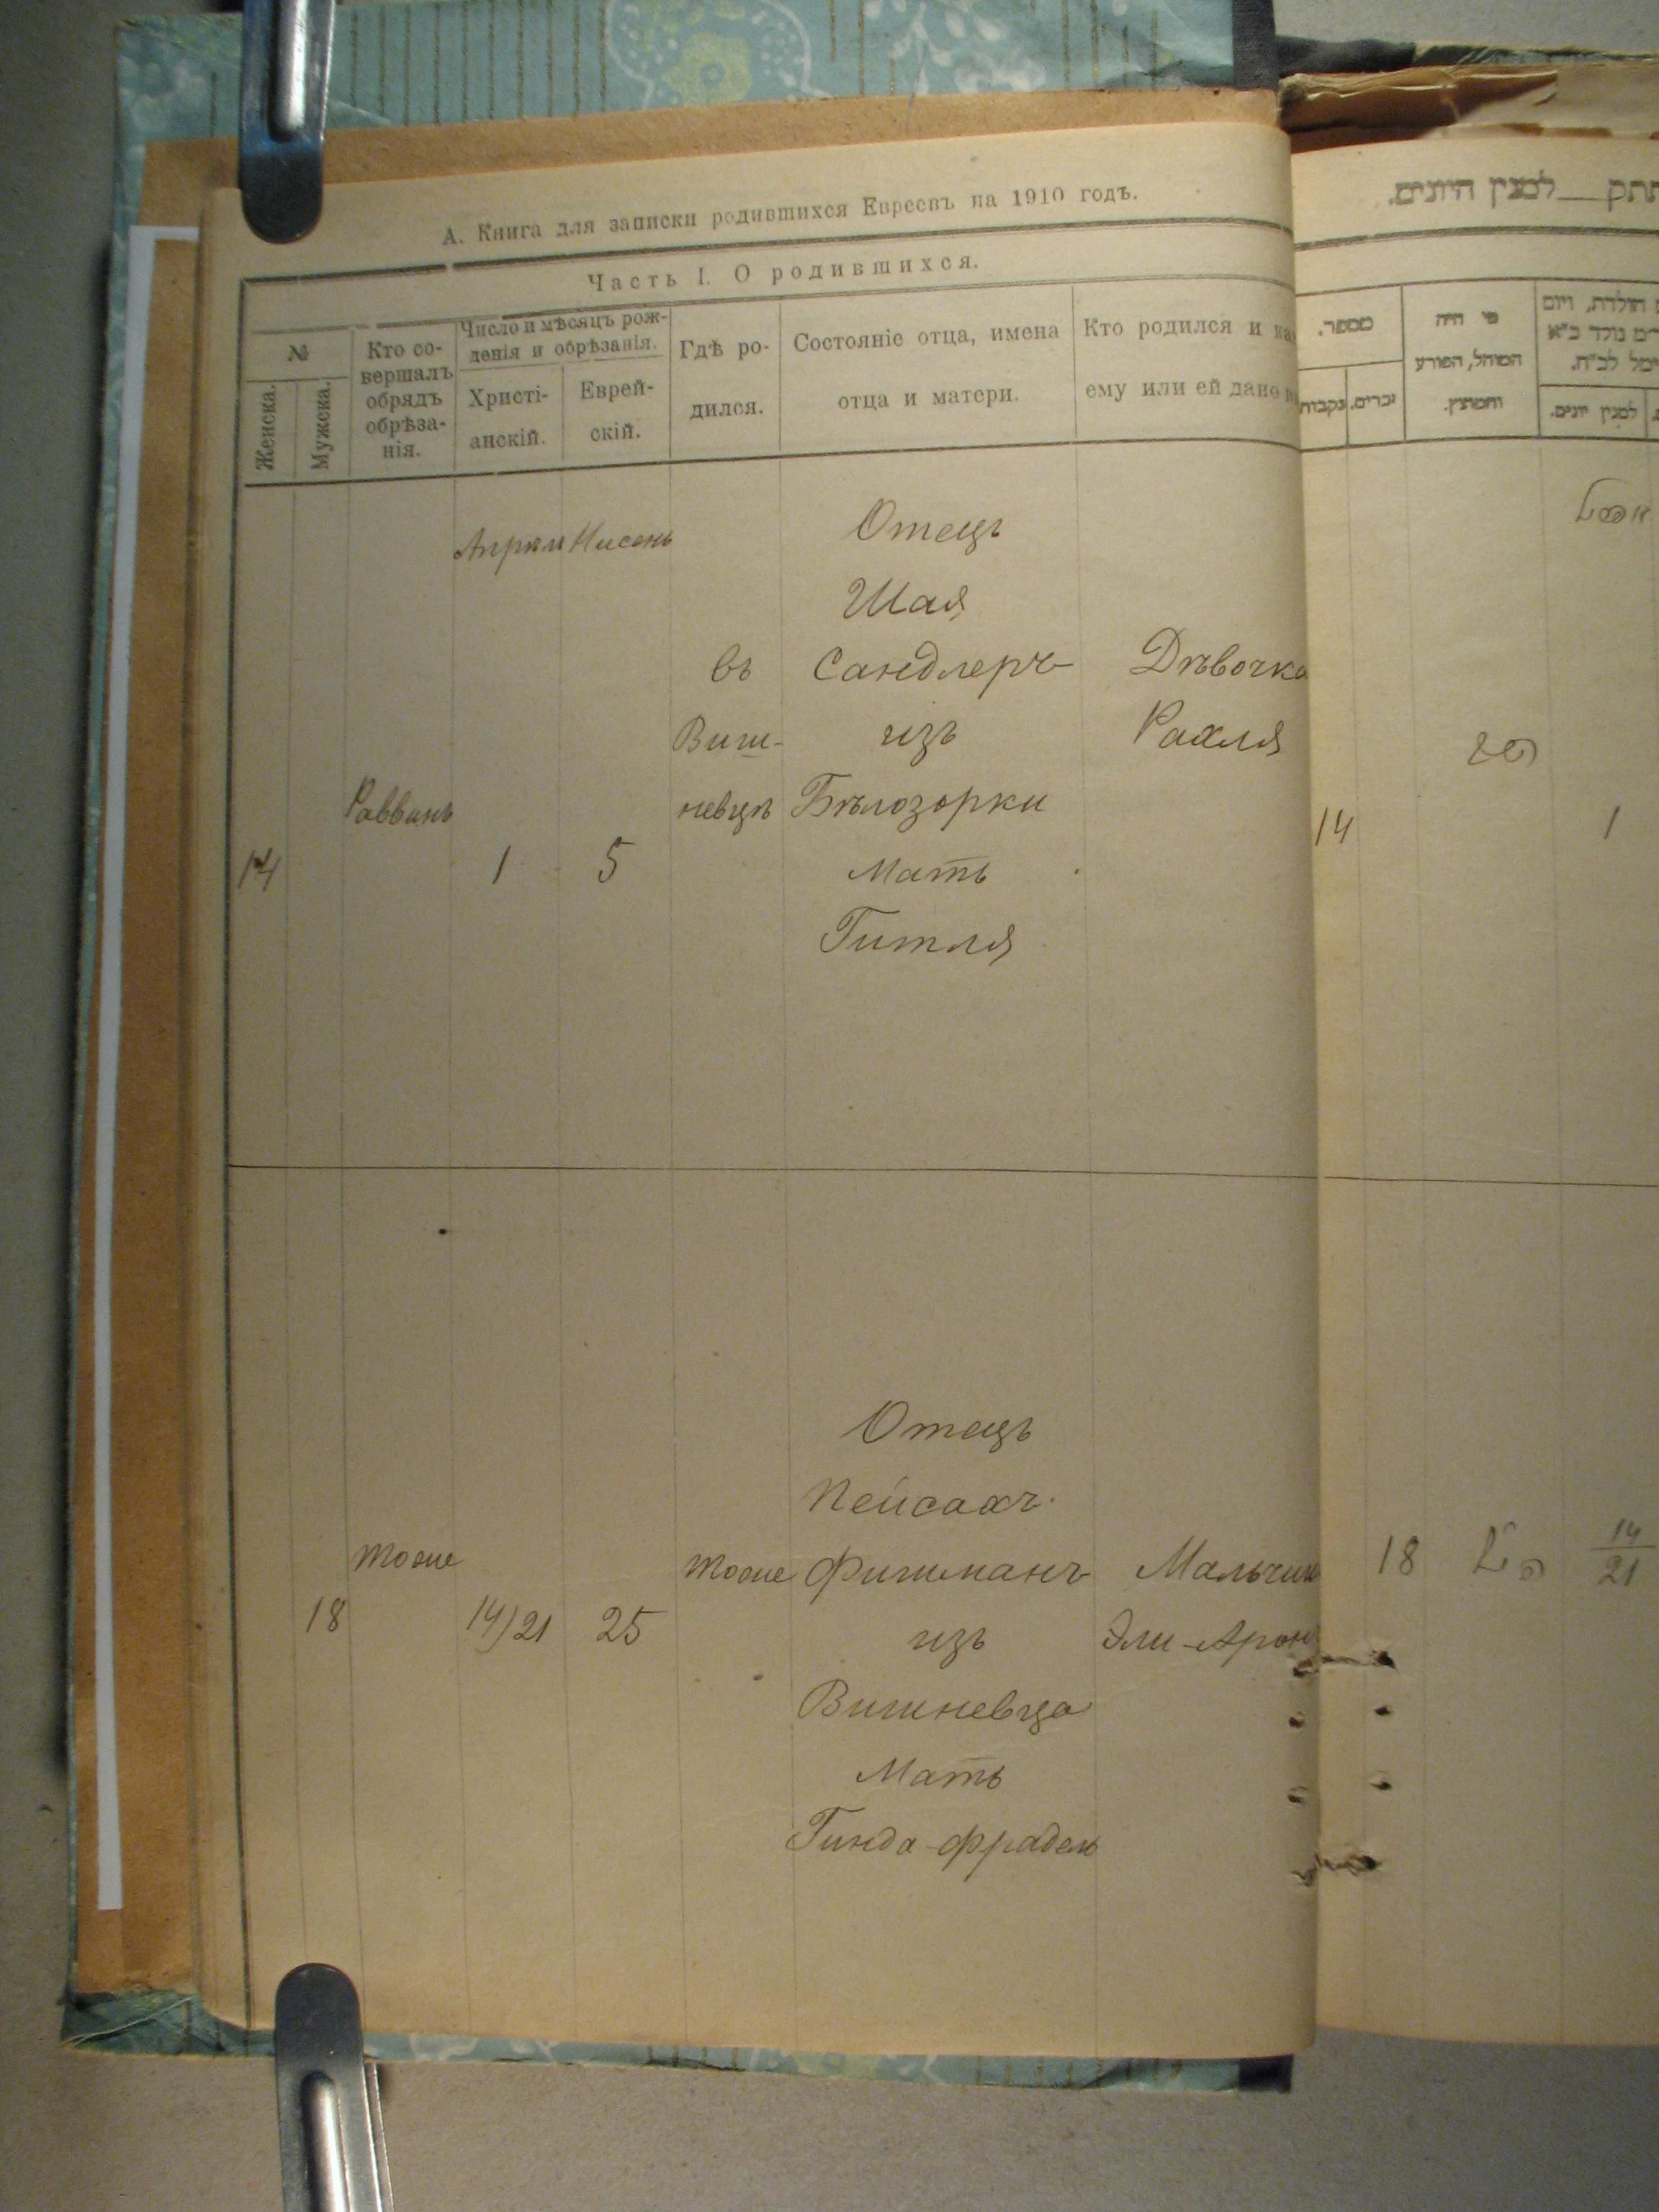 А. Книга для записки родившихся Евреевъ на 1910 годъ.
Часть I. О родившихся.
№
Женска.
Мужска.
Кто со-
вершалъ
обрядъ
обрѣза-
нія.
Число и мѣсяцъ рож-
денія и обрѣзанія.
Христі-
анскій.
Еврей-
скій.
Гдѣ ро-
дился.
Состояніе отца, имена
отца и матери.
Кто родился и ка
ему или ей дано
14
Раввинъ
Апрѣля
1
Нисонъ
5
въ
Виш-
невцѣ
Отецъ
Шая
Сандлеръ
изъ
Бѣлозорки
Мать
Гитля
Дѣвочка
Рахля
18
тоже
14/21
25
тоже
Отецъ
Пейсахъ
Фишманъ
изъ
Вишневца
Мать
Гинда-Фрадель
Мальчик
Эли-Арон
תתק למנין היונים.
מספר.
נקבות
זכרים.
מי היה
המוהל, הפורע
והמוצץ.
הולדת, ויום
נולד ב"א
לב"ח.
למנין יונים.
14
1
18
14
21